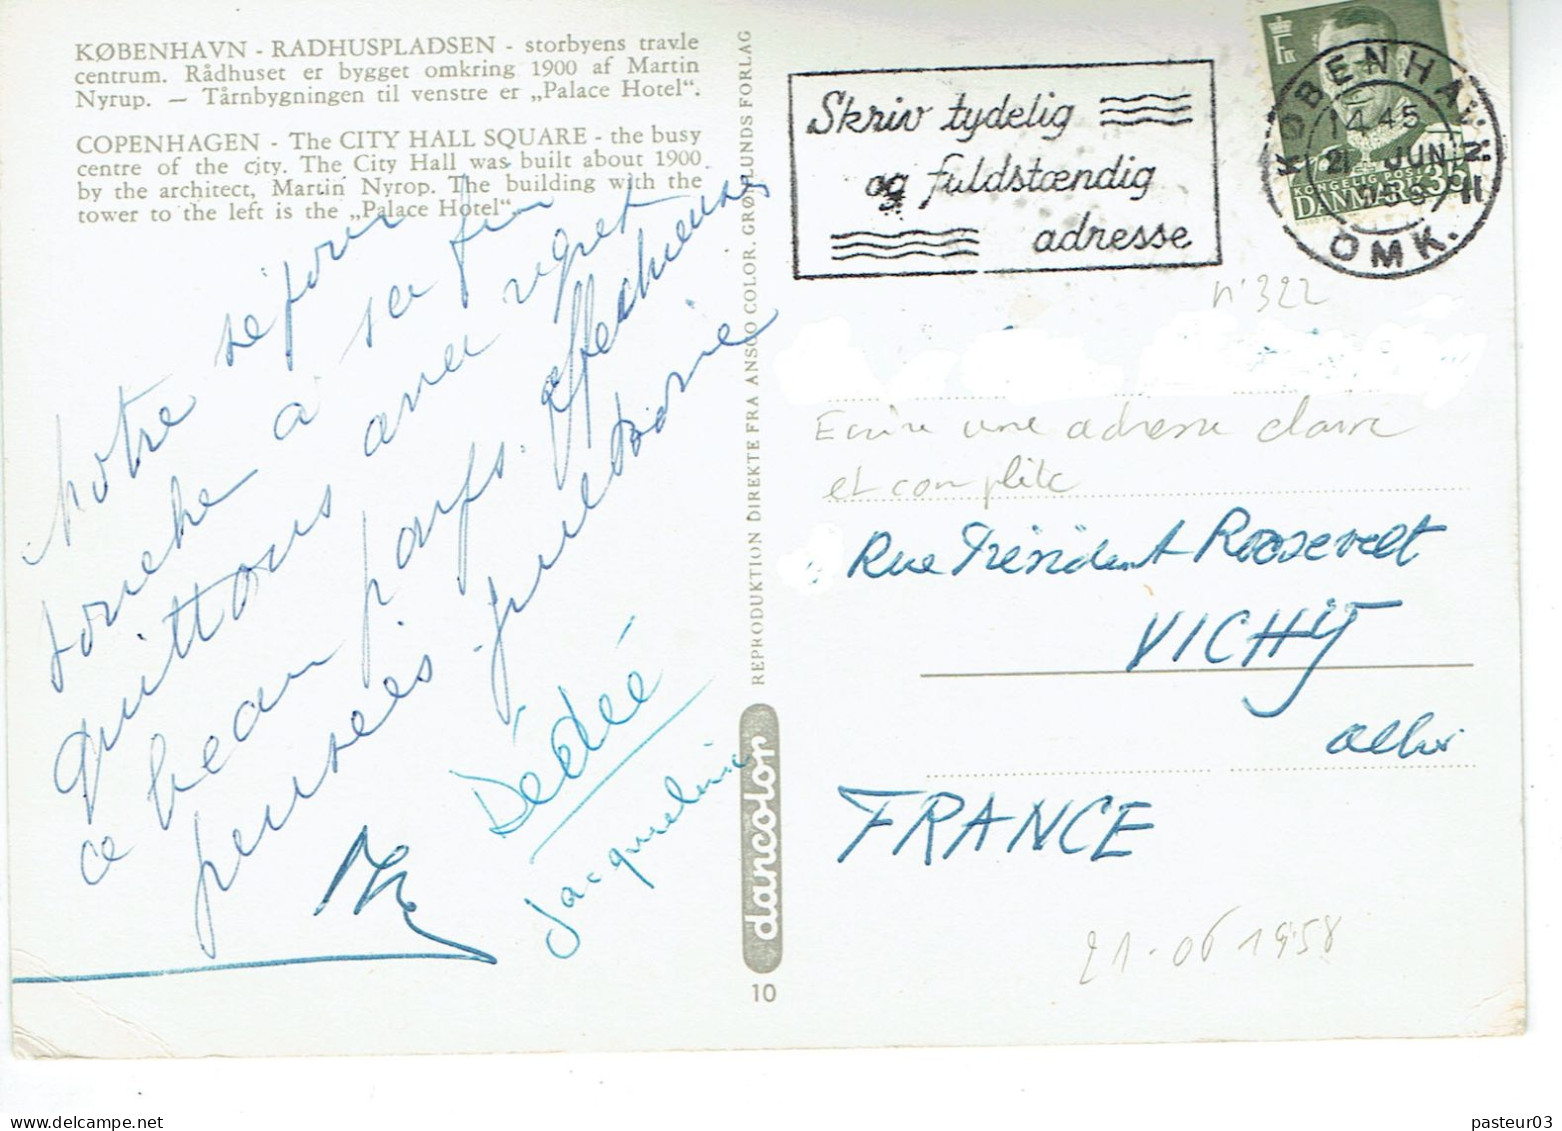 KØBENHAVN - RADHUSPLADSEN - storbyens travle
centrum. Rådhuset er bygget omkring 1900 af Martin
Nyrup. — Tårnbygningen til venstre er „Palace Hotel“.
COPENHAGEN - The CITY HALL SQUARE - the busy
centre of the city. The City Hall was built about 1900
by the architect, Martin Nyrop. The building with the
tower to the left is the „Palace Hotel“
Notre séjour
touche à sa fin
quittons avec regret
ce beau pays. affectueuses
pensées
Dédée
Jacqueline
REPRODUKTION DIREKTE FRA ANSCO COLOR. GRØNLUNDS FORLAG
dancolor
10
Skriv tydelig
og fuldstændig
adresse
KØBENHAVN
14.45
21 JUN
OMK.
KONGELIG POST
DANMARK 35
n° 322
Ecrire une adresse claire
et complète
Rue Président Roosevelt
VICHY
allier
FRANCE
21-06 1958
pasteur03